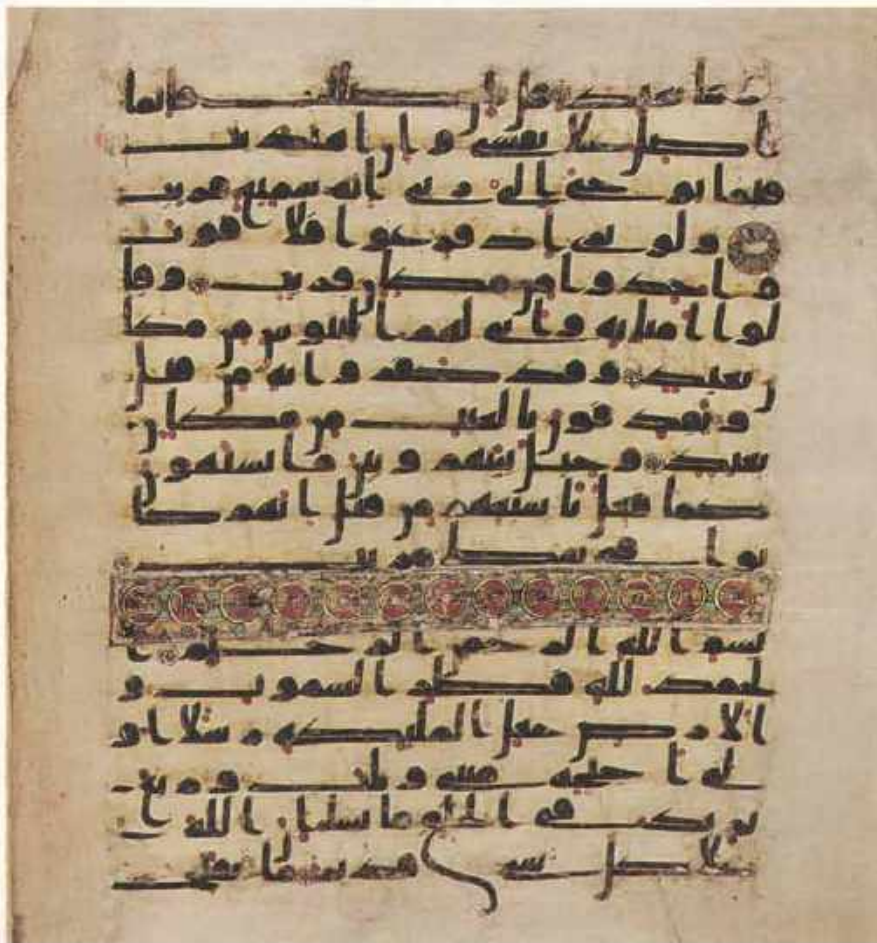 وما يعيد قل ان ضللت فانما
اضل على نفسى وان اهتديت
فبما يوحى الى ربى انه سميع قريب
ولو ترى اذ فزعوا فلا فوت
واخذوا من مكان قريب وقا
لوا امنا به وانى لهم التناوش من مكا
ن بعيد وقد كفروا به من قبل
ويقذفون بالغيب من مكان
بعيد وحيل بينهم وبين ما يشتهون
كما فعل باشيعهم من قبل انهم كا
نوا فى شك مريب
بسم الله الرحمن الرحيم ا
لحمد لله فطر السموت و
الارض جعل المليكه رسلا ا و
لى اجنحه مثنى وثلث وربع
يزيد فى الخلق ما يشا ان الله
على كل شى قدير ما يفتح